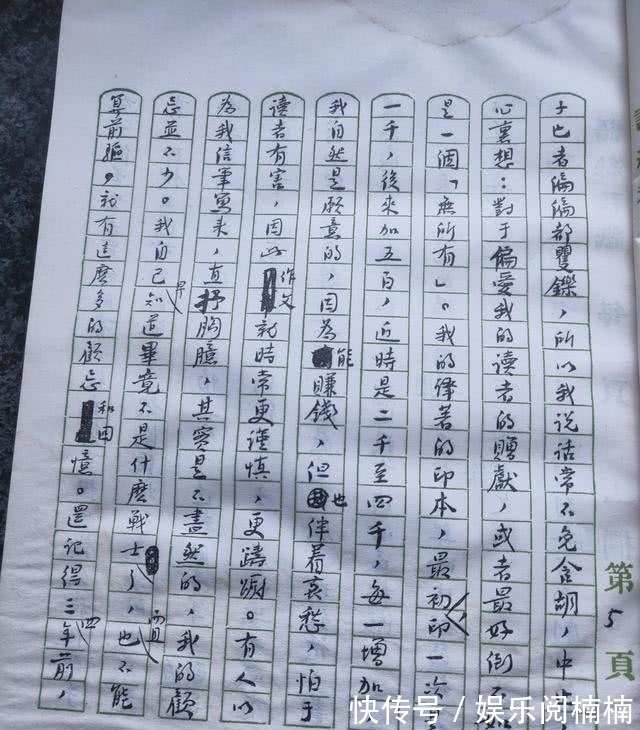 偏偏都矍鑠，所以我说话常不免含胡，中
心裏想：對于偏愛我的讀者的贈獻，或者最好倒不
是一個「無所有」。我的譯著的印本，最初印一次
一千，後來加五百，近時是二千至四千，每一增加
我自然是願意的，因為能賺錢，但也伴着哀愁，怕于
讀者有害，因此作文就時常更謹慎，更躊躇。有人以
為我信筆寫來，直抒胸臆，其實是不盡然的，我的顧
忌並不少。我自己早知道畢竟不是什麼戰士了，而且也不能
算前驅，就有這麼多的顧忌和回憶。還記得三四年前，
第5頁
快传号/娱乐阅楠楠